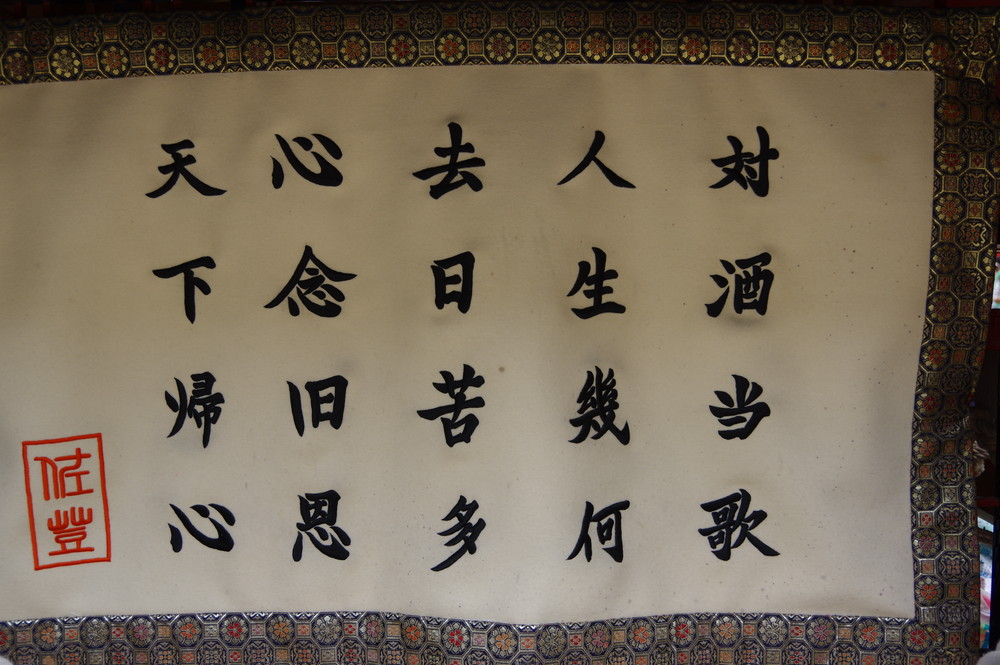 対酒当歌
人生幾何
去日苦多
心念旧恩
天下帰心
佐登